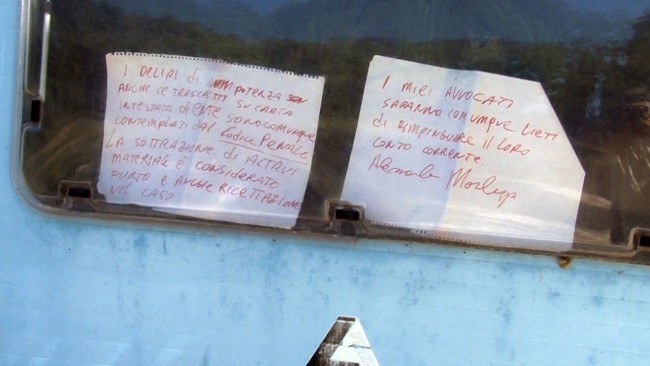 I DELIRI di IMPOTENZA
ANCHE SE TRASCRITTI SU CARTA
INTESTATA di ENTE SONO COMUNQUE
CONTEMPLATI dal Codice PENALE
LA SOTTRAZIONE di ALTRUI
MATERIALE È CONSIDERATO
FURTO E ANCHE RICETTAZIONE
NEL CASO
I MIEI AVVOCATI
SARANNO COMUNQUE LIETI
di RIMPINGUARE IL LORO
CONTO CORRENTE